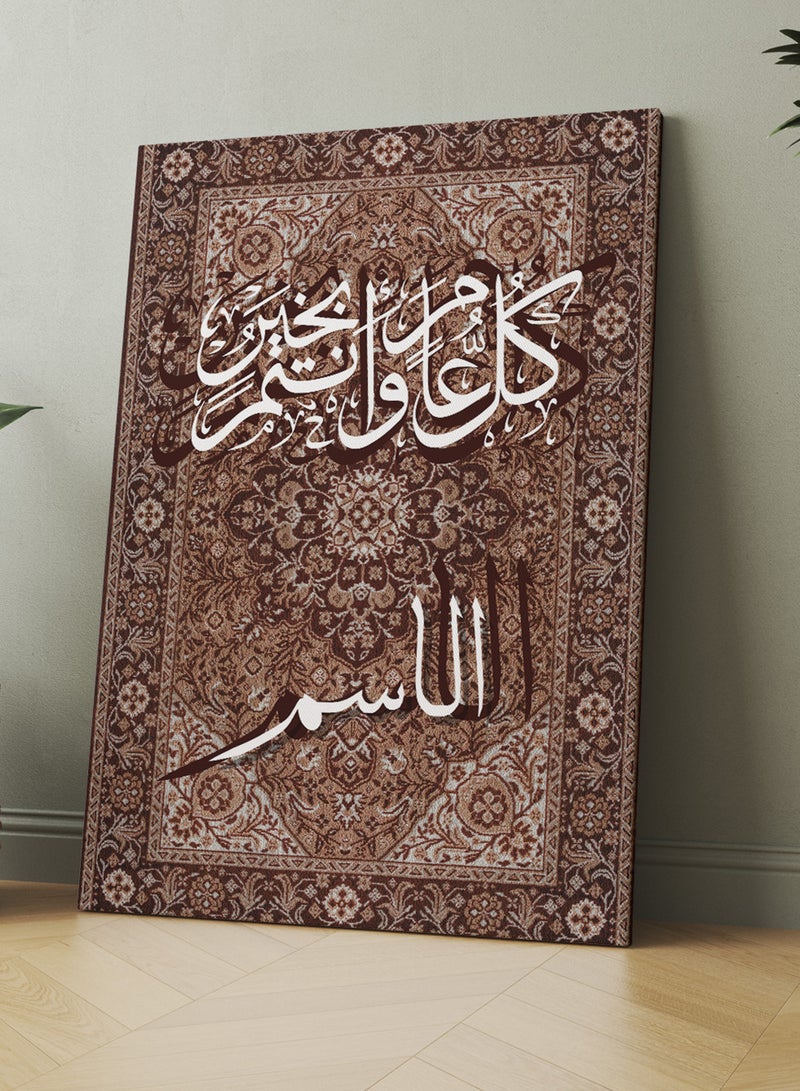 كُل عَام وَأنتم بخير
الاسم